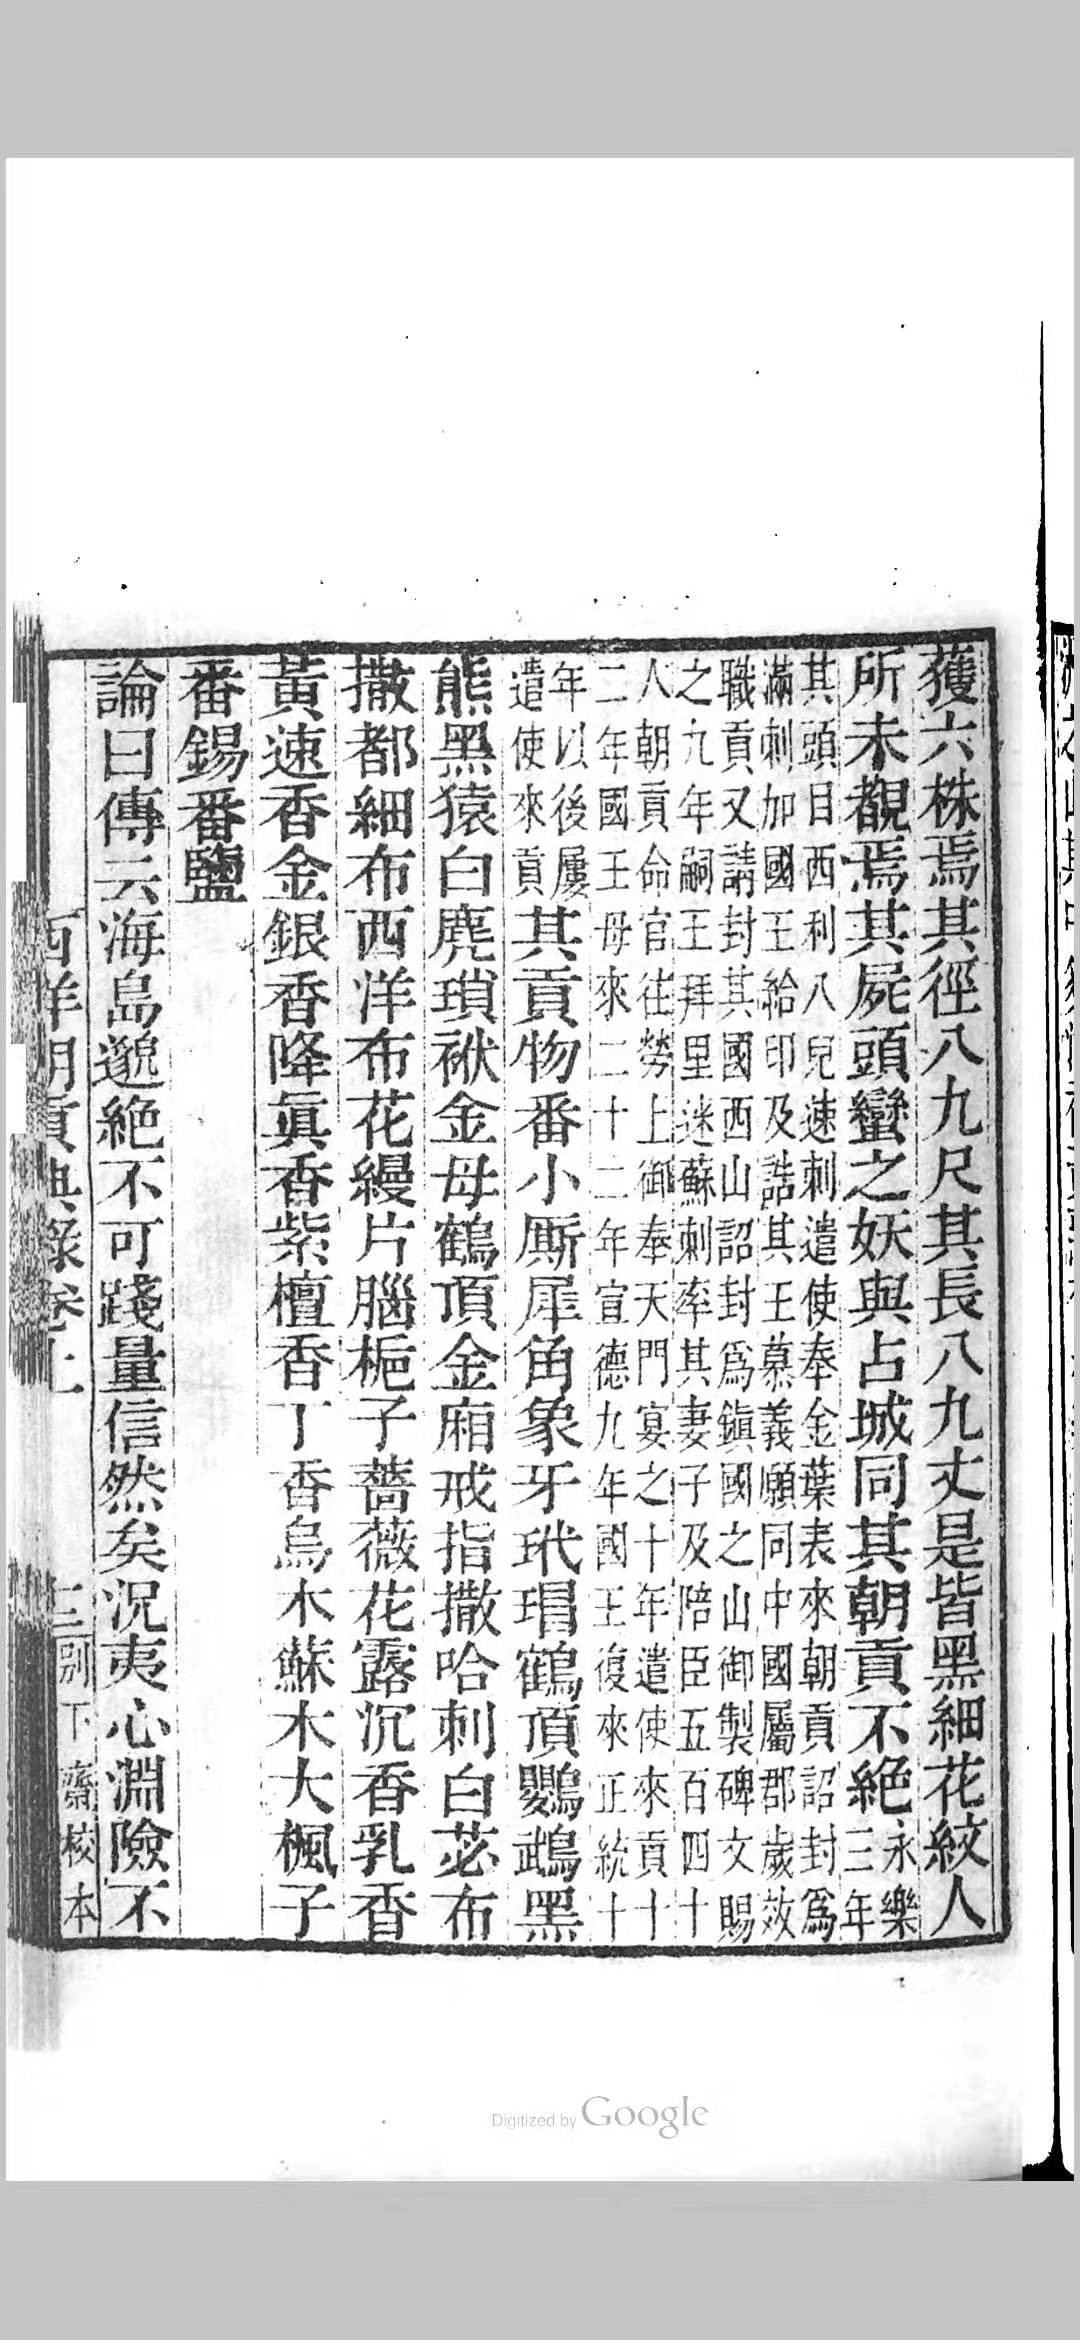 獲六株焉其徑八九尺其長八九丈是皆黑細花紋人
所未覩焉其屍頭蠻之妖與占城同其朝貢不絕永樂
三年
其頭目西利八兒速剌遣使奉金葉表來朝貢詔封爲
滿剌加國王給印及誥其王慕義願同中國屬郡歲效
職貢又請封其國西山詔封爲鎭國之山御製碑文賜
之九年嗣王拜里迷蘇剌率其妻子及陪臣五百四十
人朝貢命官往勞上御奉天門宴之十年遣使來貢十
二年國王母來二十二年宣德九年國王復來正統十
年以後屢
遣使來貢其貢物番小厮犀角象牙玳瑁鶴頂鸚鵡黑
熊黑猿白麂瑣袱金母鶴頂金廂戒指撒哈剌白苾布
撒都細布西洋布花縵片腦梔子薔薇花露沉香乳香
黃速香金銀香降眞香紫檀香丁香烏木蘇木大楓子
番錫番鹽
論曰傳云海島邈絕不可踐量信然矣況夷心淵險不
西洋朝貢典錄卷上
二別下齋校本
Digitized by Google